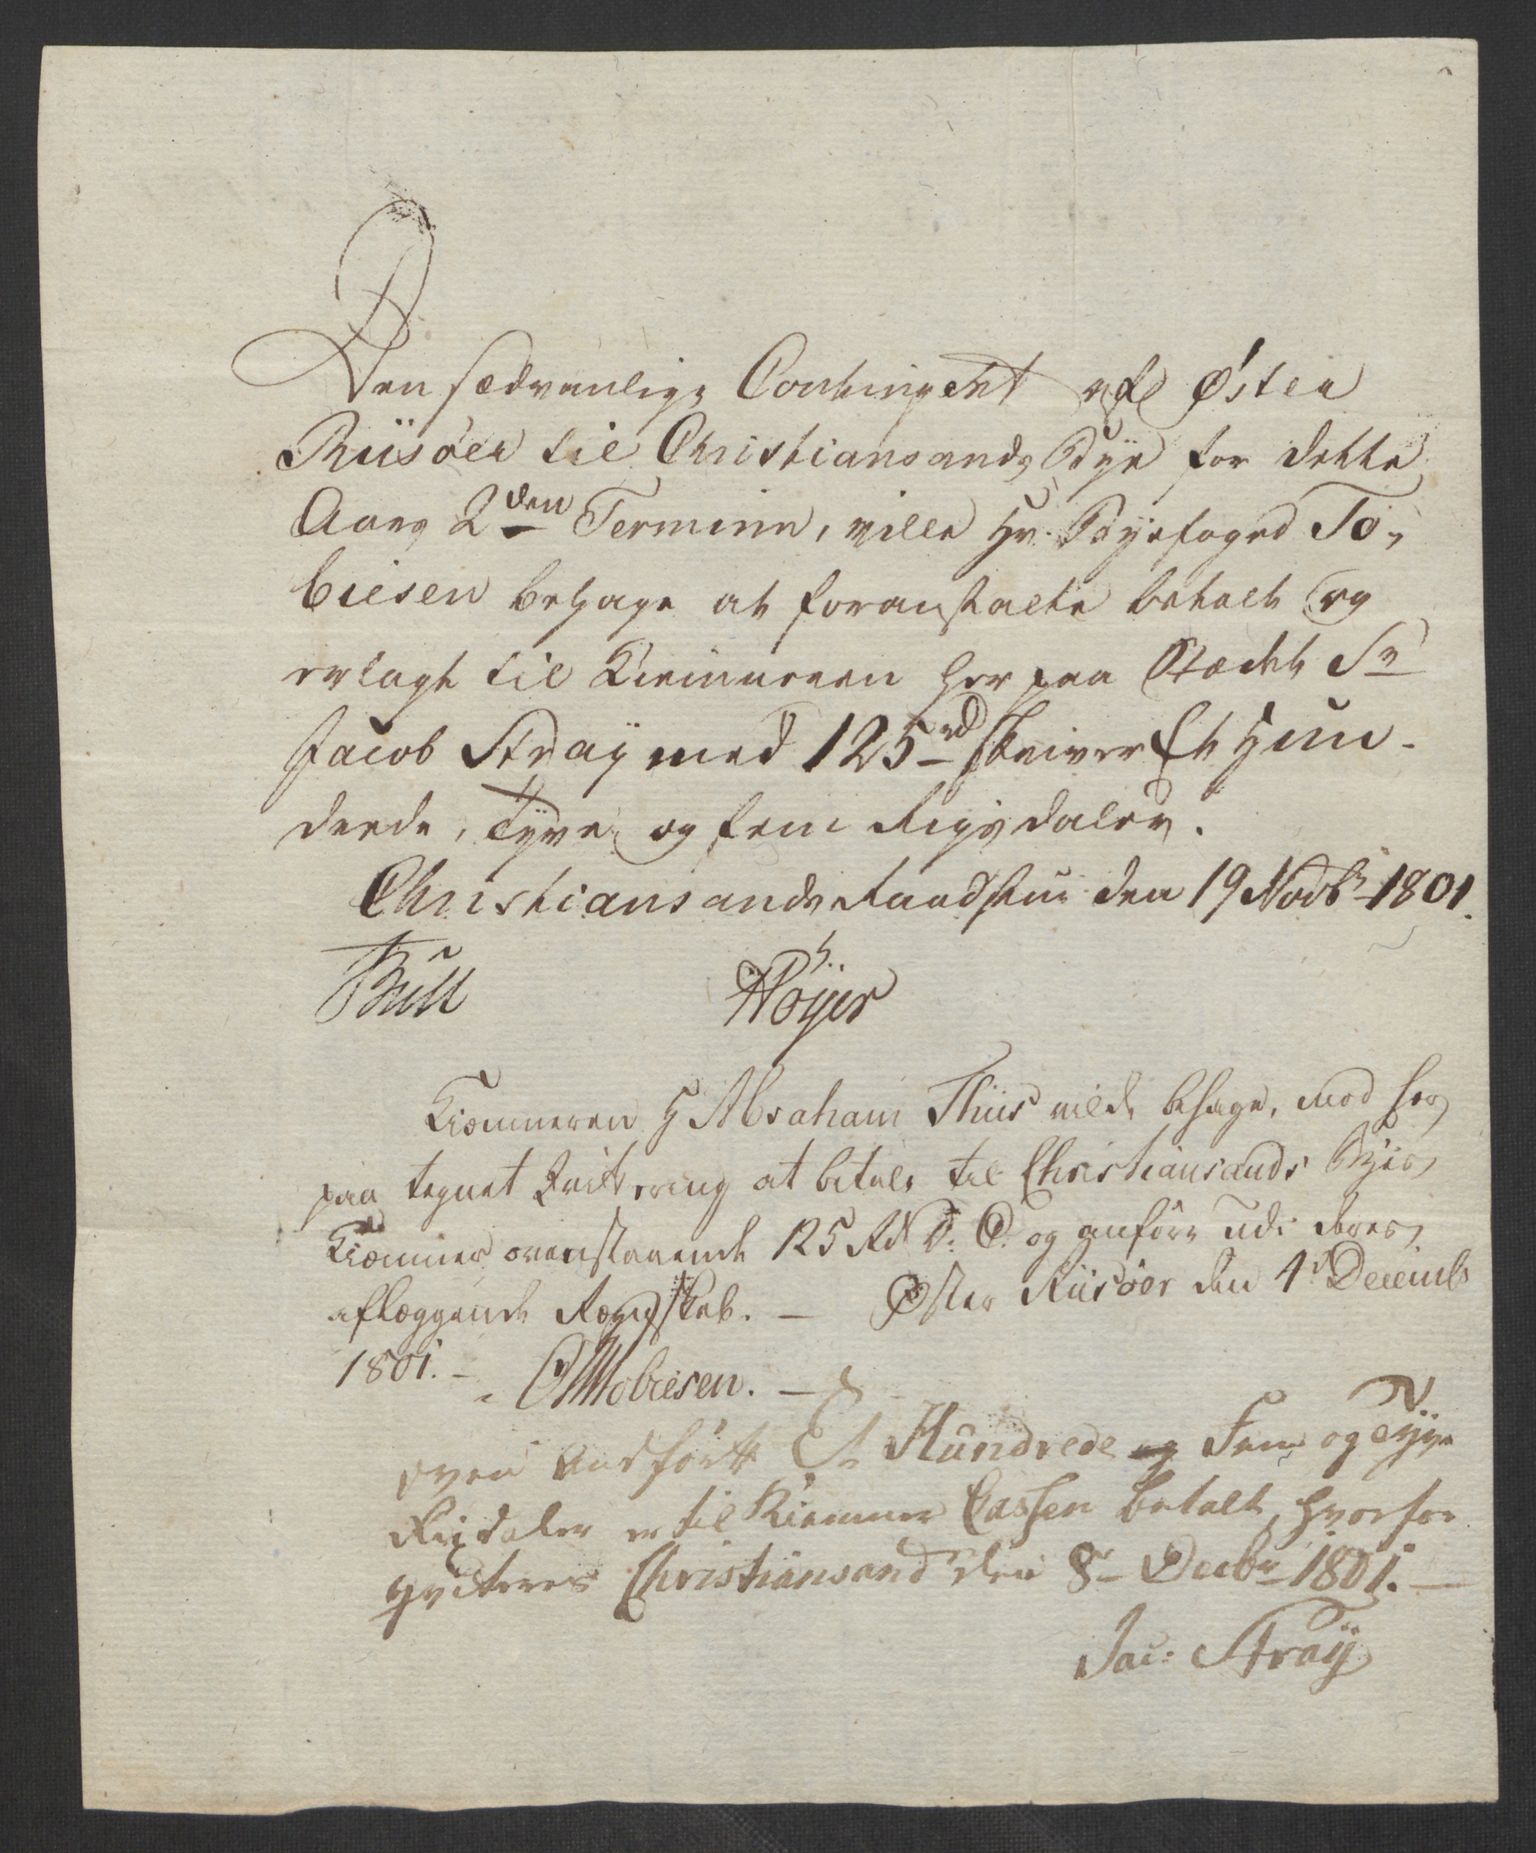 Den sædvanlige Contingent af Øster
Riisøer til Christiansands Bye for dette
Aars 2den Terminn, ville Hr. Byefoged To-
biesen behage at foranstalte betalt og
erlagt til Kiemneren her paa Stædet Sr
Jacob Straÿ med 125 rd skriver Et Hun-
drede, Tyve og fem Rigsdaler.
Christiansands Raadstue den 19 Novbr 1801.
Bull Höyer
Kiæmneren H Abraham Thiis vilde behage, mod her-
paa tegnet Qvittering at betale til Christiansands Byes
Kiæmner ovenstaaende 125 Rd D: C. og anføre udi deres
aflæggende Regnskab. — Øster Riisöer den 4d Decemb
1801. —
Tobiesen. —
oven Andförtt Et Hundrede og Fem og Tyve
Rixdaler er til Kiemner Cassen betalt, hvorfor
qviteres Christiansand den 8de Decbr 1801. —
Jac: Straÿ